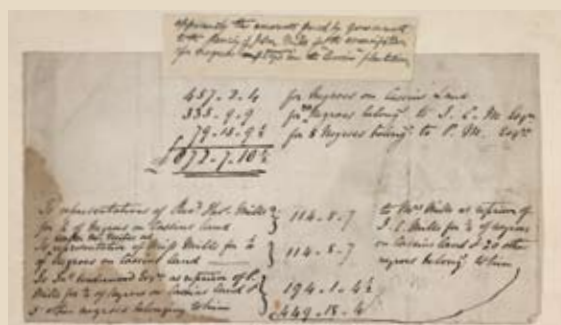 apparently the amounts paid by Government
to the family of John Mills for the emancipation
for negroes employed on the Cassius plantation
457-2-4 for Negroes on Cassius Land
335-9-9 for Negroes belong. to J. C. M. Esqr
79-15-9½ for 5 Negroes belong. to P. M. Esqre
£872-7-10½
To representatives of Revd Thos. Mills
for ¼ of Negroes on Cassius Land } 114-5-7
To representatives of Miss Mills for ¼
of Negroes on Cassius Land } 114-5-7
Underwood Esqre as of P.
Mills for ¼ of Negroes on Cassius Land &
5 other negroes belonging to him } 194-1-4½
to Mrs Mills as of
J. C. Mills for ¼ of negroes
on Cassius Land & 20 other
negroes belong. to him
449-15-4